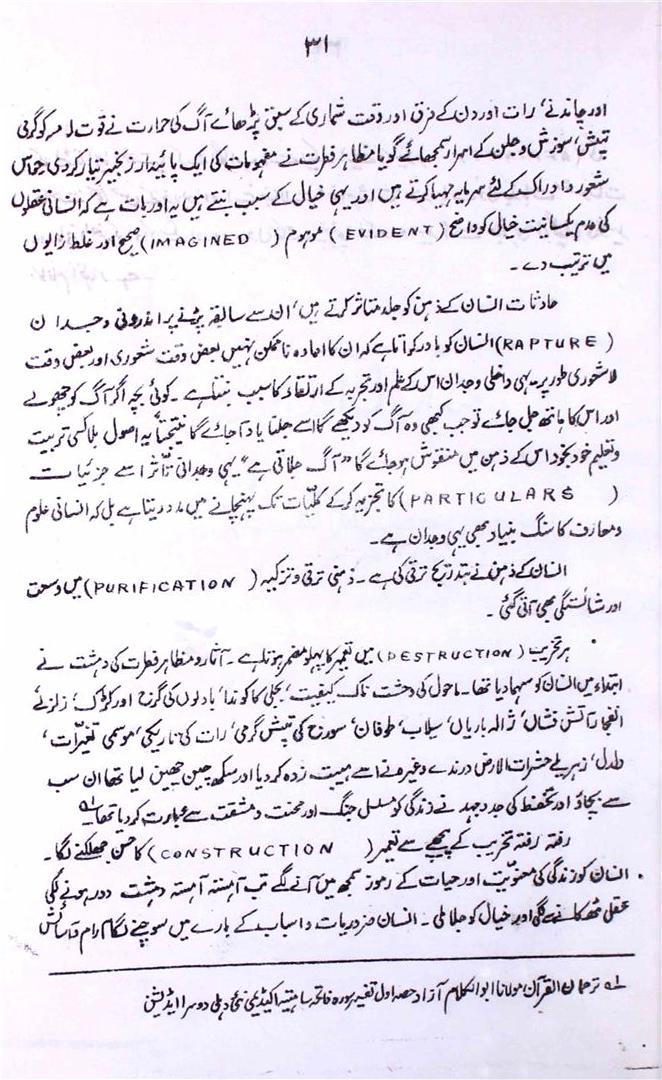 ۳۱
اور چاند نے رات اور دن کے فرق اور وقت شماری کے سبق پڑھائے آگ کی حرارت نے قوت لامسہ کو گرمی
تپش، سوزش و جلن کے اسرار سمجھائے گویا مظاہر فطرت نے مفہومات کی ایک پائیدار زنجیر تیار کر دی حواس
شعور و ادراک کے لئے سرمایہ مہیا کرتے ہیں اور یہی خیال کے سبب بنتے ہیں یہ اور بات ہے کہ انسانی عقلوں
کی عدم یکسانیت خیال کو واضح (EVIDENT) موہوم (IMAGINED) صحیح اور غلط زاویوں
میں ترتیب دے۔
حادثات انسان کے ذہن کو جلد متاثر کرتے ہیں، ان سے سابقہ پڑنے پر اندرونی وجدان
(RAPTURE) انسان کو باور کراتا ہے کہ ان کا اعادہ ناممکن نہیں بعض وقت شعوری اور بعض وقت
لاشعوری طور پر۔ یہی داخلی وجدان اس کے علم اور تجربہ کے ارتقاء کا سبب بنتا ہے۔ کوئی بچہ اگر آگ کو چھولے
اور اس کا ہاتھ جل جائے تو جب کبھی وہ آگ کو دیکھے گا اسے جلنا یاد آجائے گا نتیجتاً یہ اصول بلا کسی تربیت
و تعلیم خود بخود اس کے ذہن میں منقوش ہو جائے گا "آگ جلاتی ہے" یہی وجدانی تأثر اسے جزئیات
(PARTICULARS) کا تجزیہ کرکے کلیّات تک پہنچانے میں مدد دیتا ہے بل کہ انسانی علوم
و معارف کا سنگ بنیاد بھی یہی وجدان ہے۔
انسان کے ذہن نے بتدریج ترقی کی ہے۔ ذہنی ترقی و تزکیہ (PURIFICATION) میں وسعت
اور شائستگی بھی آتی گئی۔
ہر تخریب (DESTRUCTION) میں تعمیر کا پہلو مضمر ہوتا ہے۔ آثار و مظاہر فطرت کی دہشت نے
ابتداء میں انسان کو سہما دیا تھا۔ ماحول کی دہشت ناک کیفیت، بجلی کا کوندا، بادلوں کی گرج اور کڑک، زلزلے
انفجار آتش فشاں، ژالہ باریاں، سیلاب، طوفان، سورج کی تپش گرمی، رات کی تاریکی، موسمی تغیرّات،
دلدل، زہریلے حشرات الارض درندے وغیرہ نے اسے ہیبت زدہ کر دیا اور سکھ چین چھین لیا تھا ان سب
سے بچاؤ اور تحفظ کی جدوجہد نے زندگی کو مسلسل جنگ اور محنت و مشقت سے عبارت کر دیا تھا ؎۱
رفتہ رفتہ تخریب کے پیچھے سے تعمیر (CONSTRUCTION) کا حسن جھلکنے لگا۔
انسان کو زندگی کی معنویّت اور حیات کے رموز سمجھ میں آنے لگے تب آہستہ آہستہ دہشت دور ہونے لگی
عقل ٹھکانے لگی اور خیال کو جلا ملی۔ انسان ضروریات و اسباب کے بارے میں سوچنے لگا آرام و آسائش
؎۱ ترجمان القرآن مولانا ابوالکلام آزاد حصہ اول تفسیر سورہ فاتحہ ساہتیہ اکیڈیمی نئی دہلی دوسرا ایڈیشن